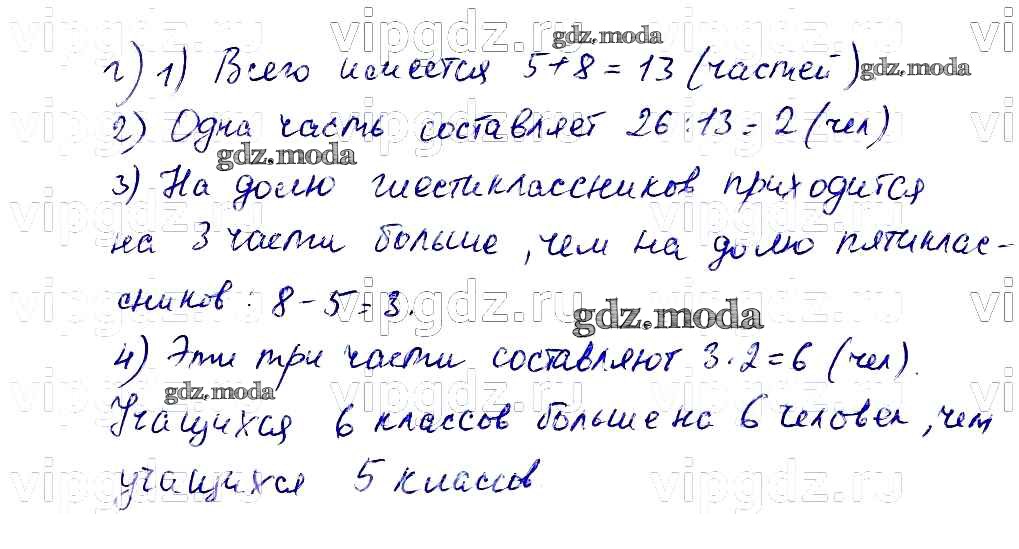 г) 1) Всего имеется 5+8=13 (частей)
2) Одна часть составляет 26:13=2 (чел)
3) На долю шестиклассников приходится
на 3 части больше, чем на долю пятиклас-
сников: 8-5=3.
4) Эти три части составляют 3·2=6 (чел).
Учащихся 6 классов больше на 6 человек, чем
учащихся 5 классов
gdz.moda
gdz.moda
gdz.moda
gdz.moda
gdz.moda
vipgdz.ru